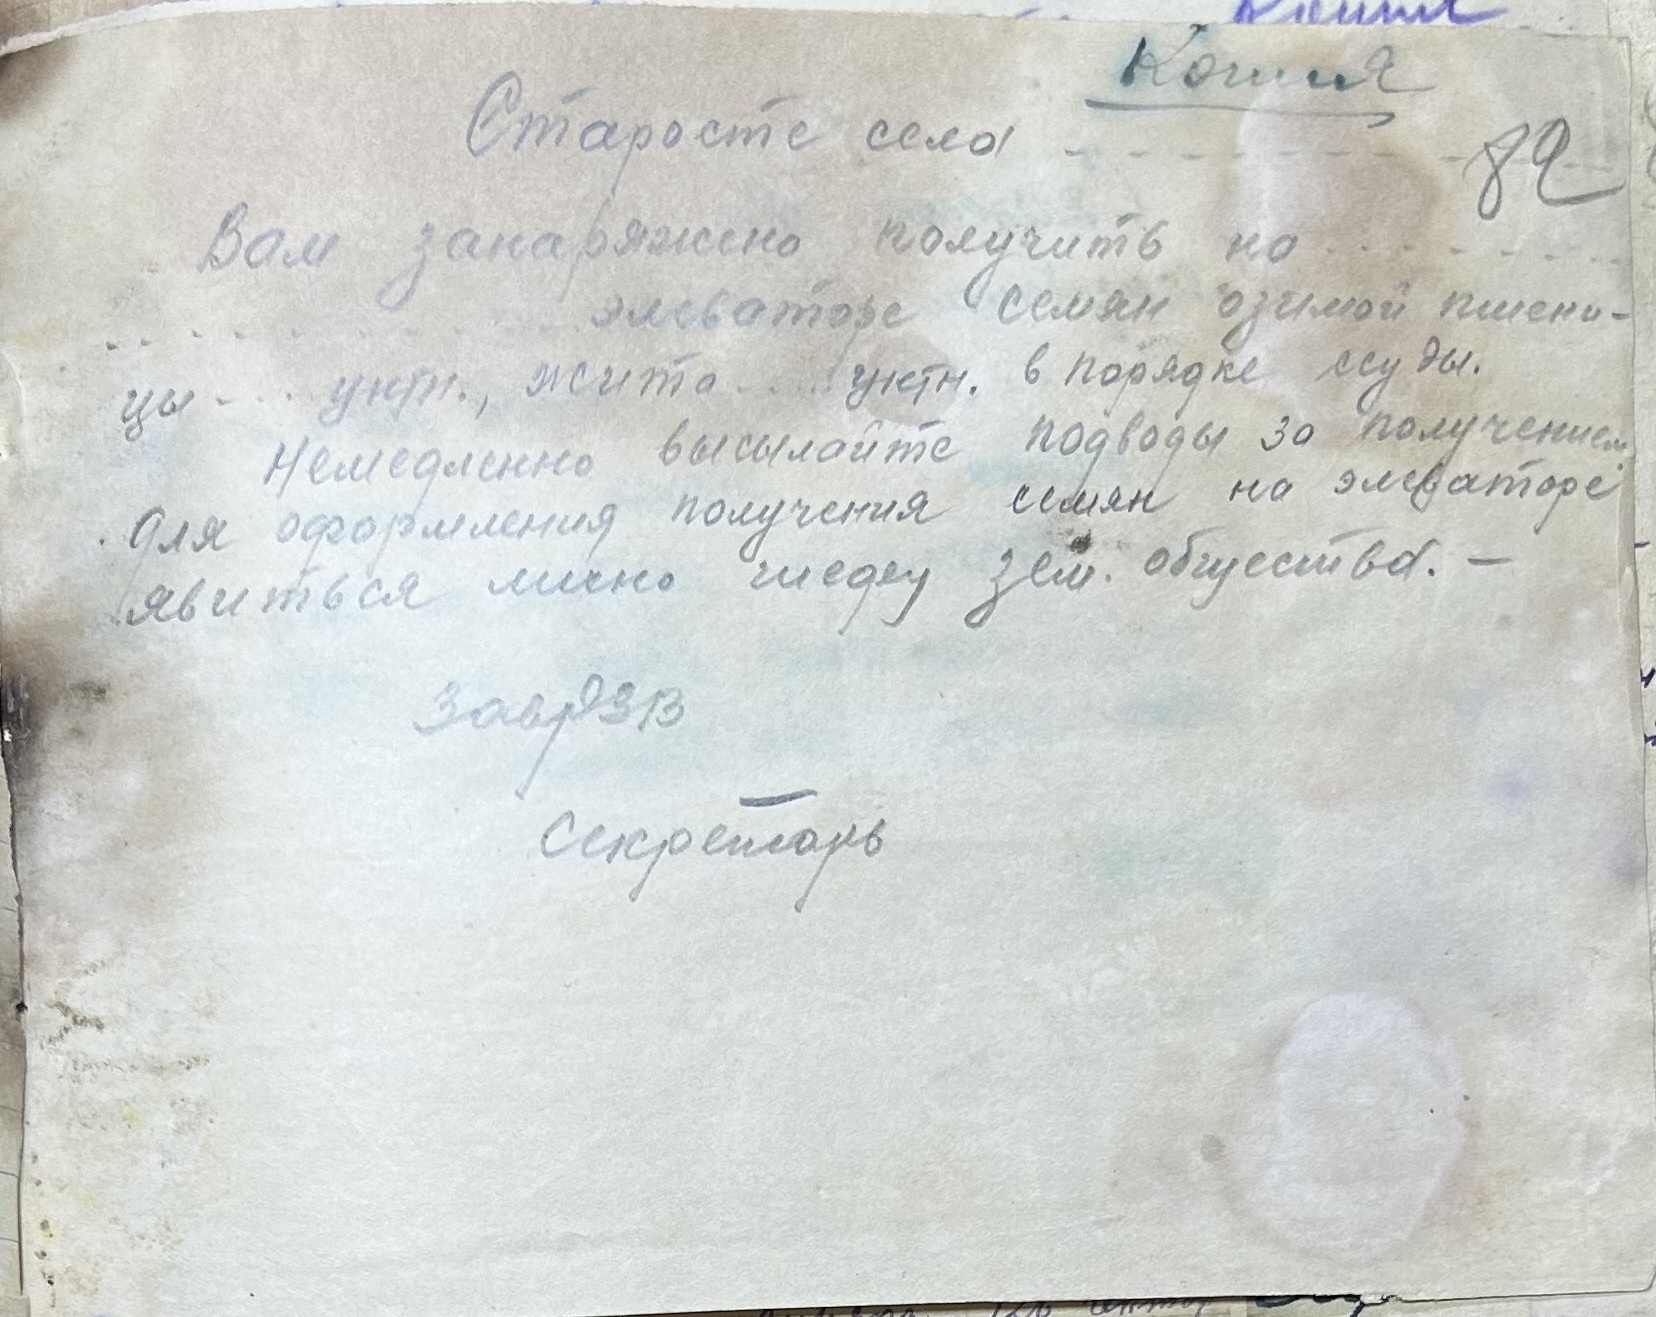 Копия
Копия
Старосте села - - - - - - - - - -
82
Вам занаряжено получить на - - - - - - -
- - - - - - - - - - элеваторе семян озимой пшени-
цы - .... уктн., жита ...... уктн. в порядке ссуды.
Немедленно высылайте подводы за получением.
Для оформления получения семян на элеваторе
явиться лично шефу зем. общества. —
Зав РЗВ
—
Секретарь